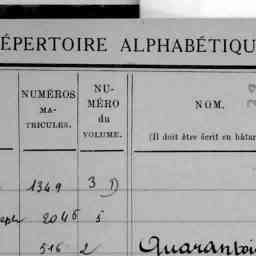 ÉPERTOIRE ALPHABÉTIQU
NUMÉROS
MA-
TRICULES.
NU-
MÉRO
du
VOLUME.
NOM.
(Il doit être écrit en bâtar
1349 3
2046 5
516 2